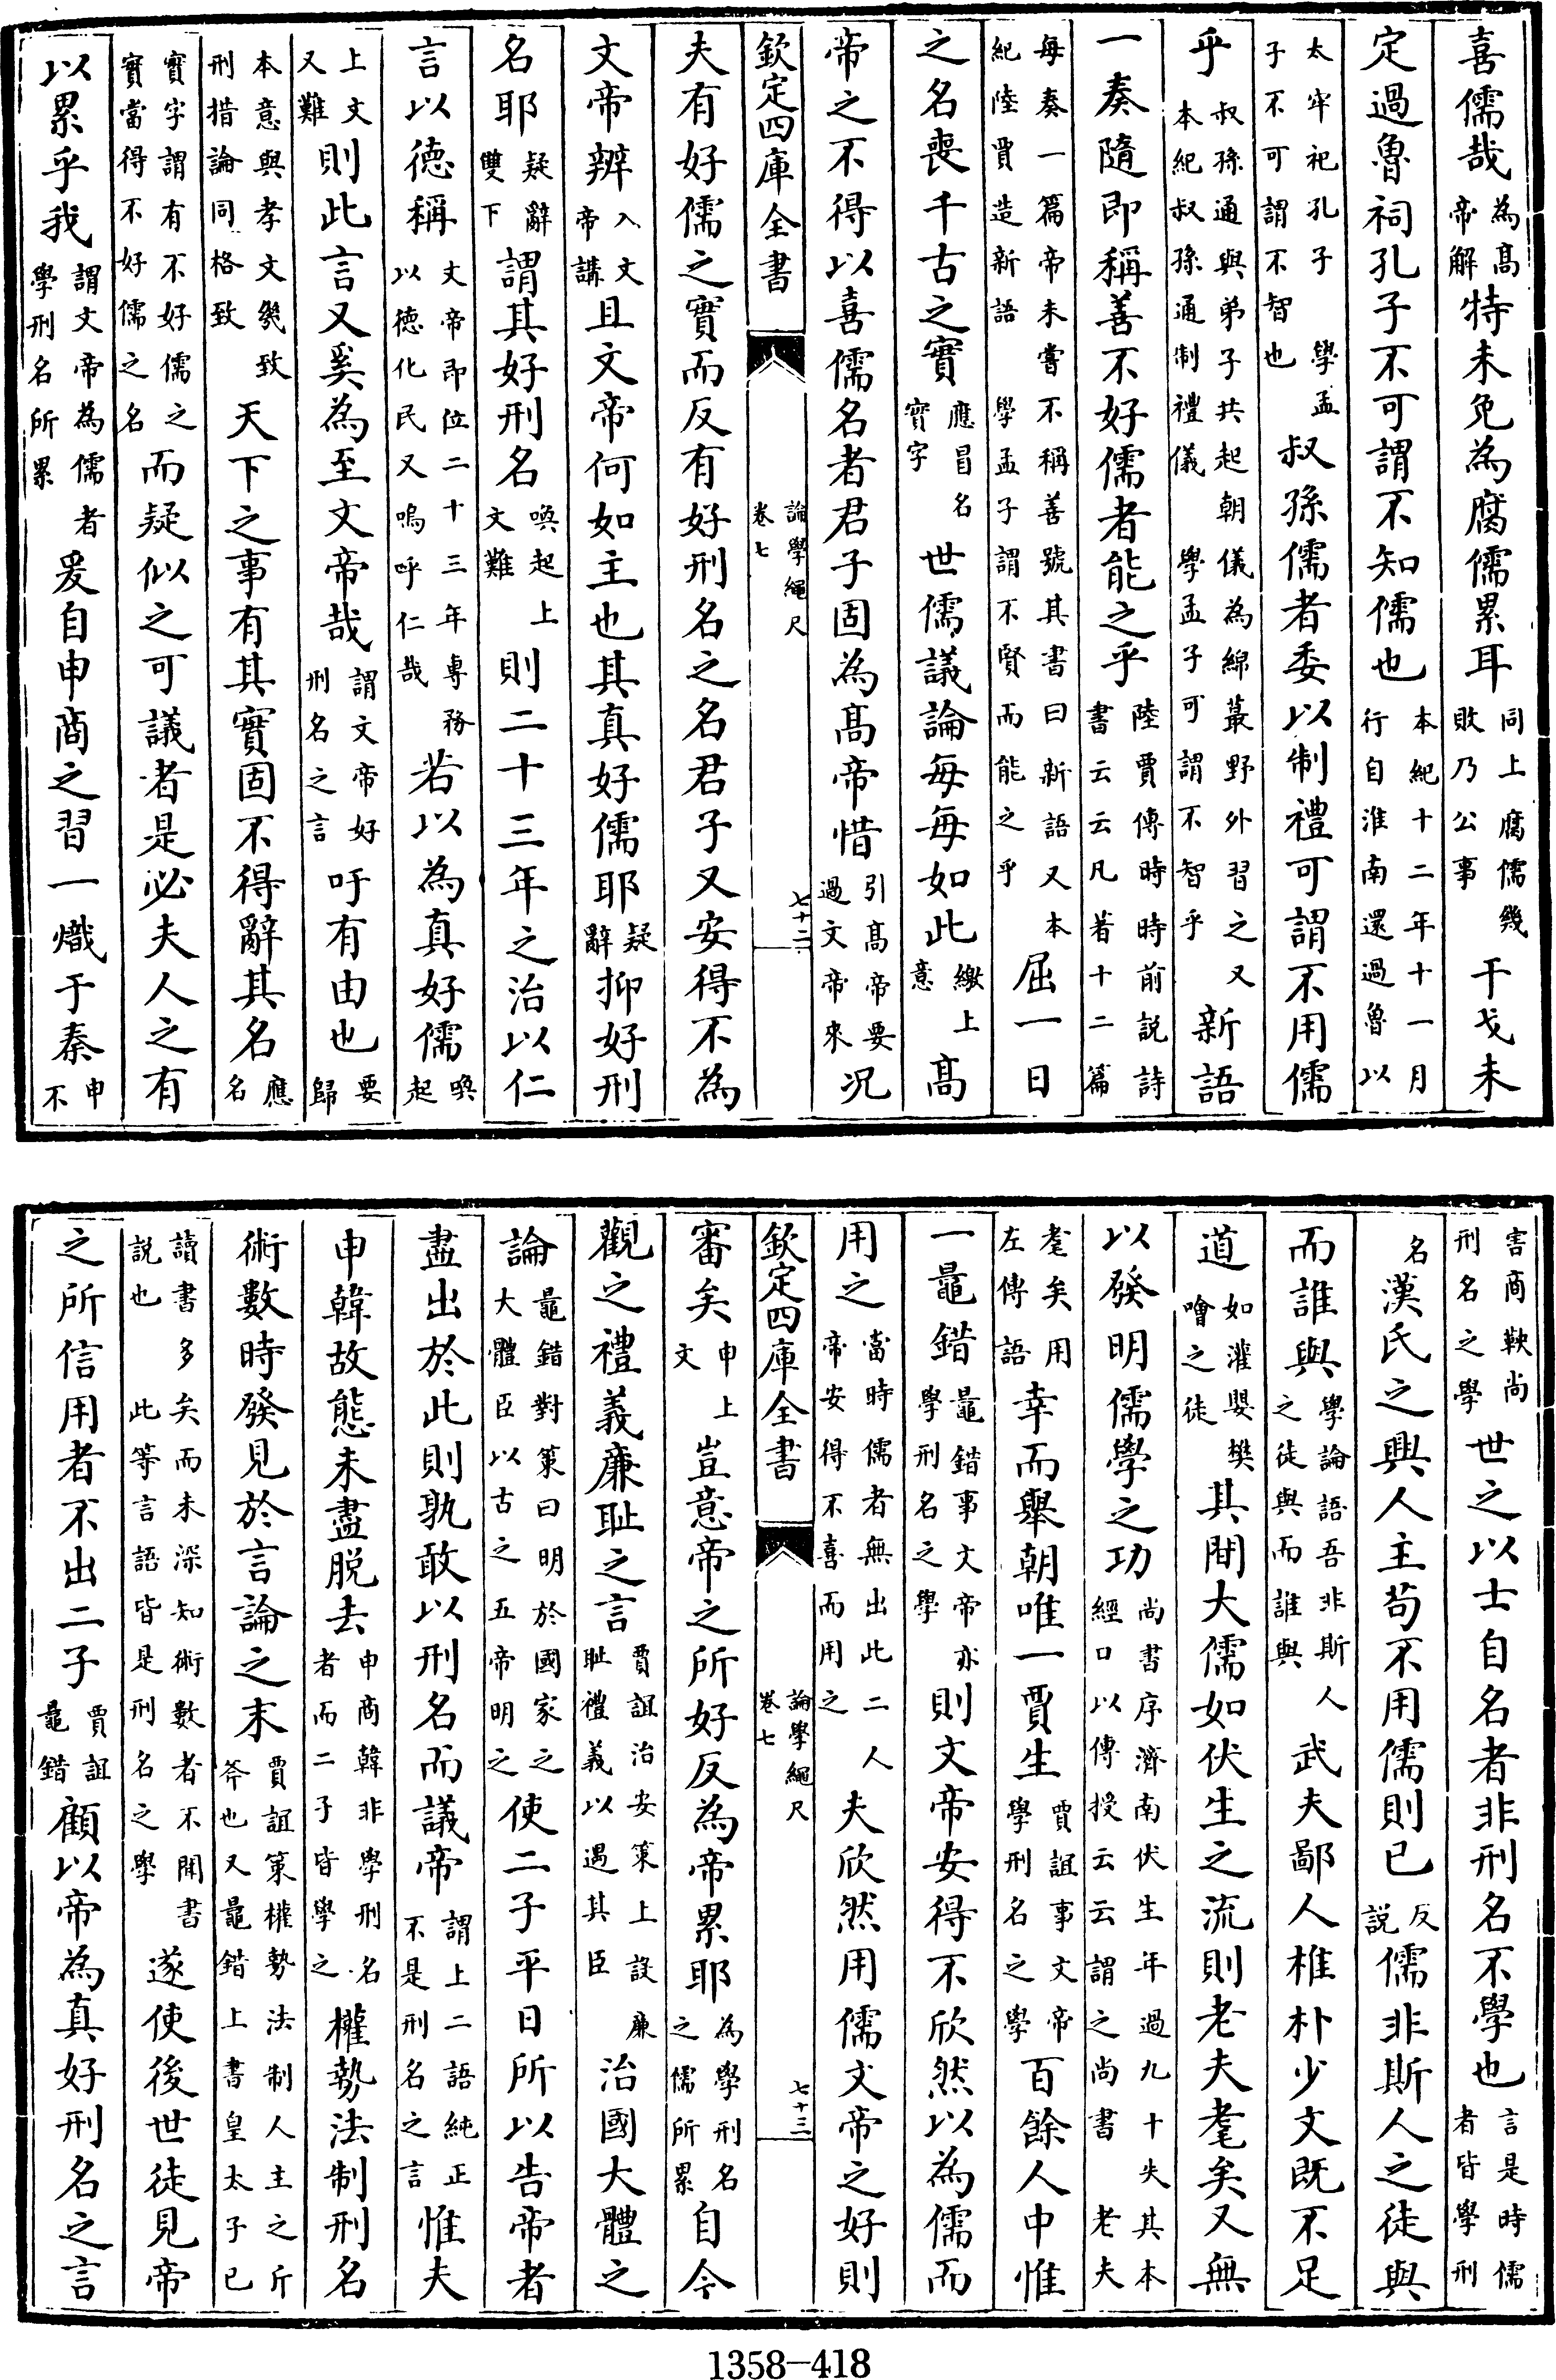 喜儒哉為髙帝解特未免為腐儒累耳同上腐儒幾敗乃公事干戈未
定過魯祠孔子不可謂不知儒也本紀十二年十一月行自淮南還過魯以
太牢祀孔子學孟子不可謂不智也叔孫儒者委以制禮可謂不用儒
乎叔孫通與弟子共起朝本紀叔孫通制禮儀儀為綿蕞野外習之又學孟子可謂不智乎新語
一奏隨即稱善不好儒者能之乎陸賈傳時時前說詩書云云凡著十二篇
每奏一篇帝未嘗不稱善號其書曰新語又本紀陸賈造新語學孟子謂不賢而能之乎屈一日
之名喪千古之實應冒名實字世儒議論每每如此繳上意髙
帝之不得以喜儒名者君子固為髙帝惜引髙帝要過文帝來况
欽定四庫全書
論學繩尺卷七
七十二
夫有好儒之實而反有好刑名之名君子又安得不為
文帝辨入文帝講且文帝何如主也其真好儒耶疑辭抑好刑
名耶疑辭雙下謂其好刑名喚起上文難則二十三年之治以仁
言以德稱文帝即位二十三年專務以德化民又嗚呼仁哉若以為真好儒喚起
上文又難則此言又奚為至文帝哉謂文帝好刑名之言吁有由也要歸
本意與孝文幾致刑措論同格致天下之事有其實固不得辭其名應名
實字謂有不好儒之實當得不好儒之名而疑似之可議者是必夫人之有
以累乎我謂文帝為儒者學刑名所累爰自申商之習一熾于秦申不
害商鞅尚刑名之學世之以士自名者非刑名不學也言是時儒者皆學刑
名漢氏之興人主苟不用儒則已反説儒非斯人之徒與
而誰與學論語吾非斯人之徒與而誰與武夫鄙人椎朴少文既不足
道如灌嬰樊噲之徒其間大儒如伏生之流則老夫耄矣又無
以發明儒學之功尚書序濟南伏生年過九十失其本經口以傳授云云謂之尚書老夫
耄矣用左傳語幸而舉朝唯一賈生賈誼事文帝學刑名之學百餘人中惟
一鼂錯鼂錯事文帝亦學刑名之學則文帝安得不欣然以為儒而
用之當時儒者無出此二人帝安得不喜而用之夫欣然用儒文帝之好則
欽定四庫全書
論學繩尺卷七
七十三
審矣申上文豈意帝之所好反為帝累耶為學刑名之儒所累自今
觀之禮義廉耻之言賈誼治安策上設廉耻禮義以遇其臣治國大體之
論鼂錯對策曰明於國家之大體臣以古之五帝明之使二子平日所以告帝者
盡出於此則孰敢以刑名而議帝謂上二語純正不是刑名之言惟夫
申韓故態未盡脱去申商韓非學刑名者而二子皆學之權勢法制刑名
術數時發見於言論之末賈誼策權勢法制人主之斤斧也又鼂錯上書皇太子已
讀書多矣而未深知術數者不開書説也此等言語皆是刑名之學遂使後世徒見帝
之所信用者不出二子賈誼鼂錯顧以帝為真好刑名之言
1358-418